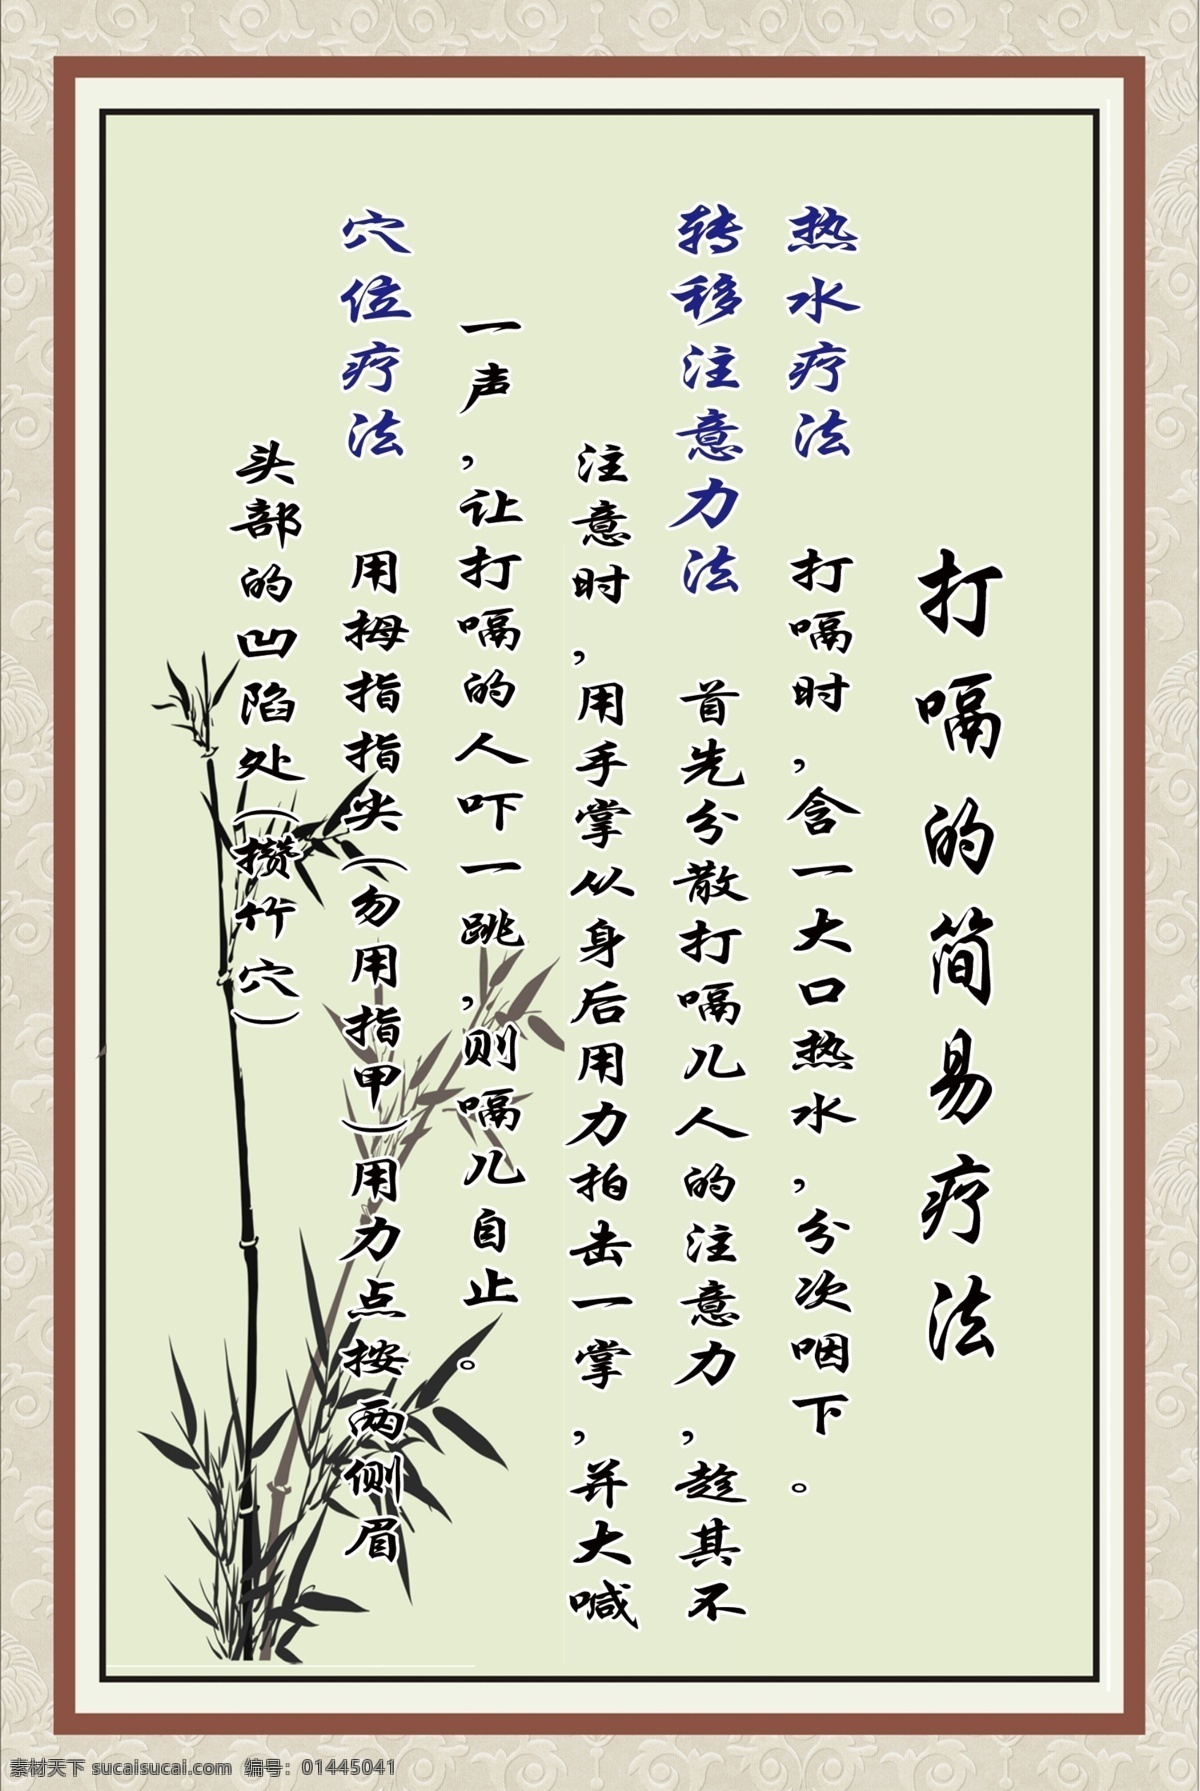 打嗝的简易疗法
热水疗法 打嗝时,含一大口热水,分次咽下。
转移注意力法 首先分散打嗝儿人的注意力,趁其不
注意时,用手掌从身后用力拍击一掌,并大喊
一声,让打嗝的人吓一跳,则嗝儿自止。
穴位疗法 用拇指指尖(勿用指甲)用力点按两侧眉
头部的凹陷处(攒竹穴)
素材天下 sucaisucai.com 编号:01445041